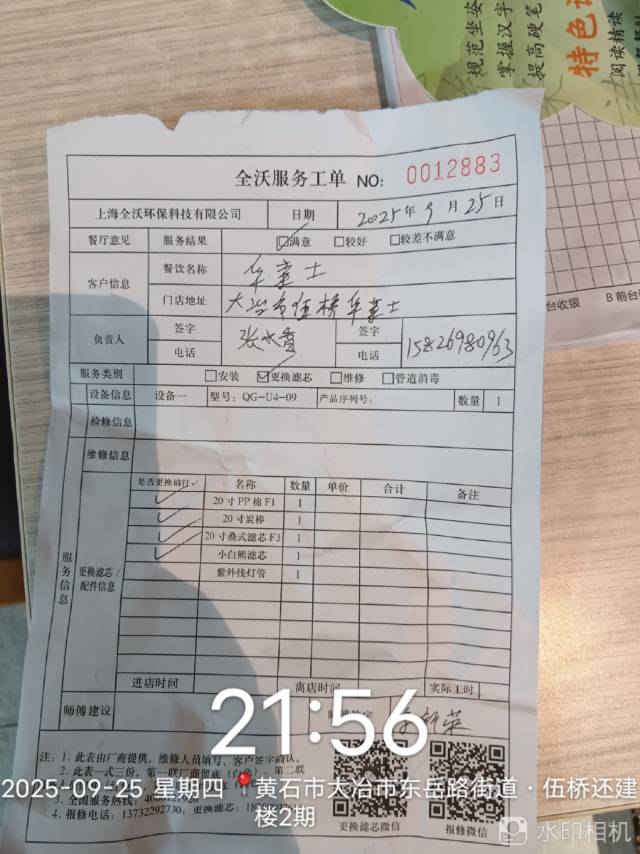 规范坐姿
掌握汉字
提高硬笔
特色
阅读精读
台收银
B 前台
全沃服务工单 NO: 0012883
上海全沃环保科技有限公司 日期 2025年9月25日
餐厅意见 服务结果 满意 较好 较差不满意
客户信息 餐饮名称 华莱士
门店地址 大冶市伍桥华莱士
负责人 签字 张水香 签字
电话 电话 15826980963
服务类别 安装 更换滤芯 维修 管道消毒
设备信息 设备一 型号: QG-U4-09 产品序列号: 数量 1
检修信息
维修信息
服务信息
更换滤芯/配件信息
是否更换请打✓ 名称 数量 单价 合计 备注
✓ 20寸PP棉F1 1
✓ 20寸炭棒 1
✓ 20寸叠式滤芯F3 1
✓ 小白熊滤芯 1
紫外线灯管 1
进店时间 离店时间 实际工时
师傅建议
21:56
注: 1. 此表由厂商提供, 维修人员填写, 客户签字确认。
2. 此表一式三份, 第一联厂商留底
2025-09-25 星期四 黄石市大冶市东岳路街道·伍桥还建楼2期
3. 全国服务热线:
4. 报修电话: 13732292730, 更换滤芯:
更换滤芯微信
报修微信
水印相机